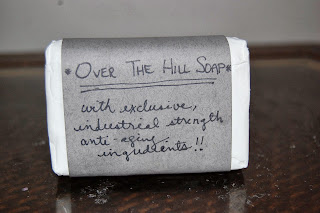 • OVER THE HILL SOAP •
with exclusive,
industrial strength
anti-aging
ingredients!!